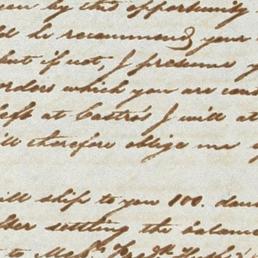 by the opportunity
be recommend your
but if not, I presume
orders which you are
left at Castro's I will at
ill therefore oblige me
ill ship to you 100.
settling the balance
to Mess.